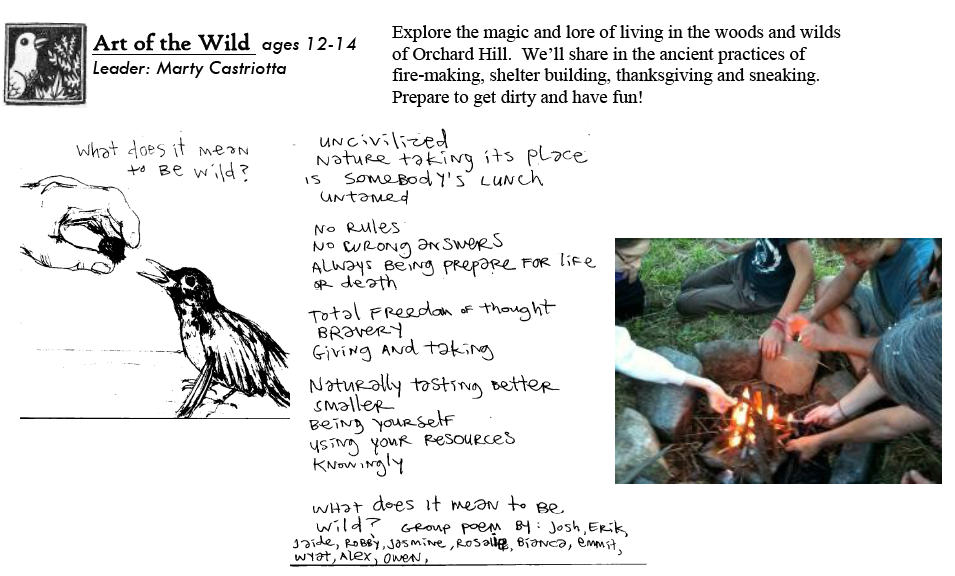 Art of the Wild ages 12-14
Leader: Marty Castriotta
Explore the magic and lore of living in the woods and wilds
of Orchard Hill.  We'll share in the ancient practices of
fire-making, shelter building, thanksgiving and sneaking.
Prepare to get dirty and have fun!
What does it mean
to Be wild?
uncivilized
Nature taking its place
is somebody's lunch
untamed
No Rules
No wrong answers
Always Being prepare for life
or death
Total Freedom of thought
Bravery
Giving And taking
Naturally tasting better
smaller
Being yourself
using your resources
knowingly
What does it mean to Be
wild? Group poem By: Josh, Erik,
Jaide, Robby, Jasmine, Rosalie, Bianca, emmit,
wyat, Alex, Owen,